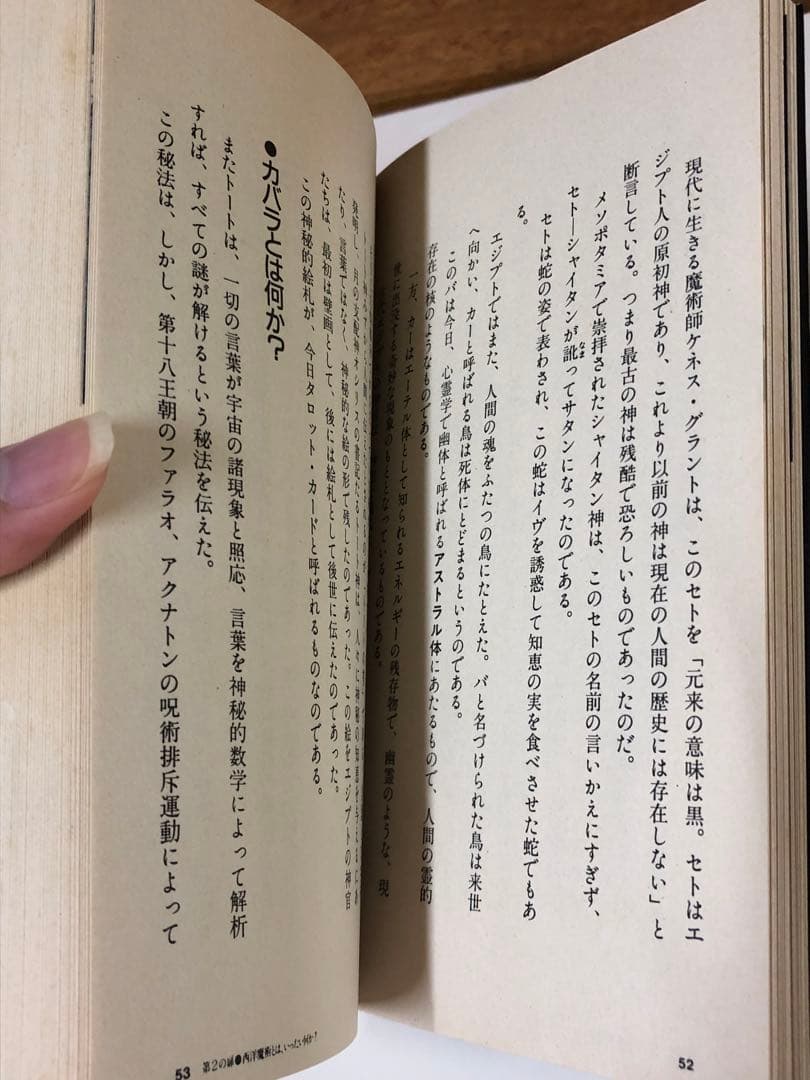 現代に生きる魔術師ケネス・グラントは、このセトを「元来の意味は黒。セトはエ
ジプト人の原初神であり、これより以前の神は現在の人間の歴史には存在しない」と
断言している。つまり最古の神は残酷で恐ろしいものであったのだ。
メソポタミアで崇拝されたシャイタン神は、このセトの名前の言いかえにすぎず、
セト―シャイタンが訛ってサタンになったのである。
なま
セトは蛇の姿で表わされ、この蛇はイヴを誘惑して知恵の実を食べさせた蛇でもあ
る。
エジプトではまた、人間の魂をふたつの鳥にたとえた。バと名づけられた鳥は来世
へ向かい、カーと呼ばれる鳥は死体にとどまるというのである。
このバは今日、心霊学で幽体と呼ばれるアストラル体にあたるもので、人間の霊的
存在の核のようなものである。
一方、カーはエーテル体として知られるエネルギーの残存物で、幽霊のような、現
世に出没する奇妙な現象のもととなっているものである。
発明し、月の支配神オシリスの書記たるトート神は、人々に神秘の知恵を与えるにあ
たり、言葉ではなく、神秘的な絵の形で残したのであった。この絵をエジプトの神官
たちは、最初は壁画として、後には絵札として後世に伝えたのであった。
この神秘的絵札が、今日タロット・カードと呼ばれるものなのである。
●カバラとは何か？
またトートは、一切の言葉が宇宙の諸現象と照応、言葉を神秘的数学によって解析
すれば、すべての謎が解けるという秘法を伝えた。
この秘法は、しかし、第十八王朝のファラオ、アクナトンの呪術排斥運動によって
52
53
第2の扉●西洋魔術とは、いったい何か？